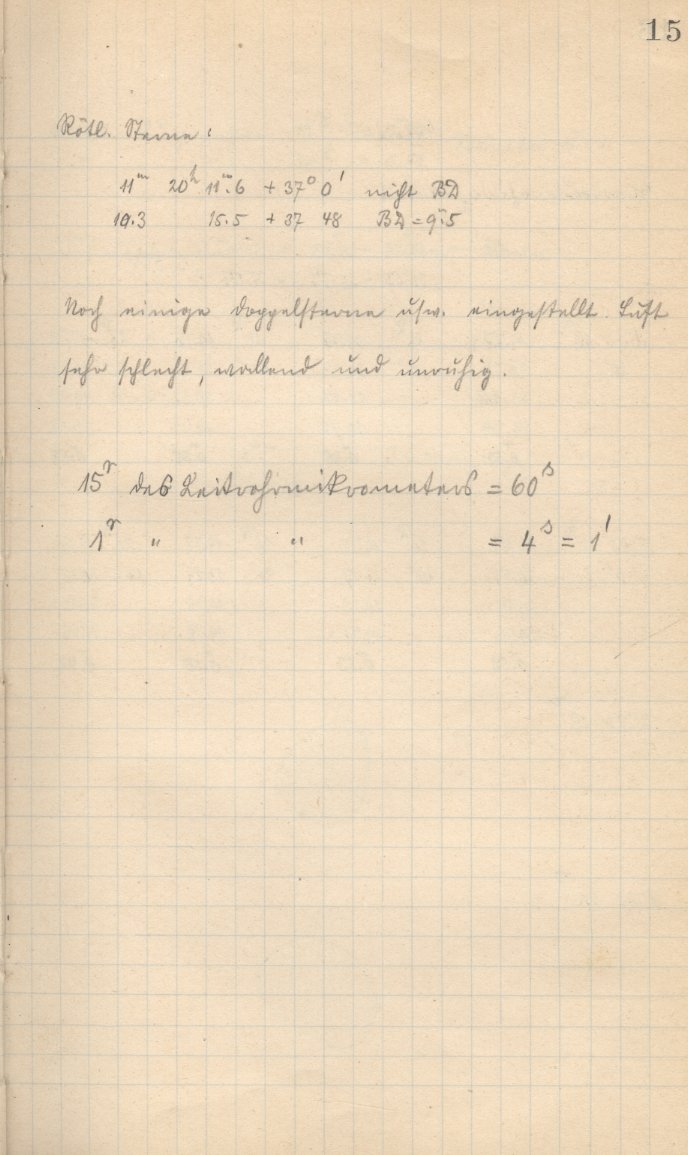 15
Rötl. Sterne:
11ᵐ 20ʰ 11ᵐ.6 + 37° 0' nicht BD
10.3 15.5 + 37 48 BD = 9ᵐ.5
Noch einige Doppelsterne usw. eingestellt. Luft
sehr schlecht, wallend und unruhig.
15ʳ des Leitrohrmikrometers = 60ˢ
1ʳ " " = 4ˢ = 1'